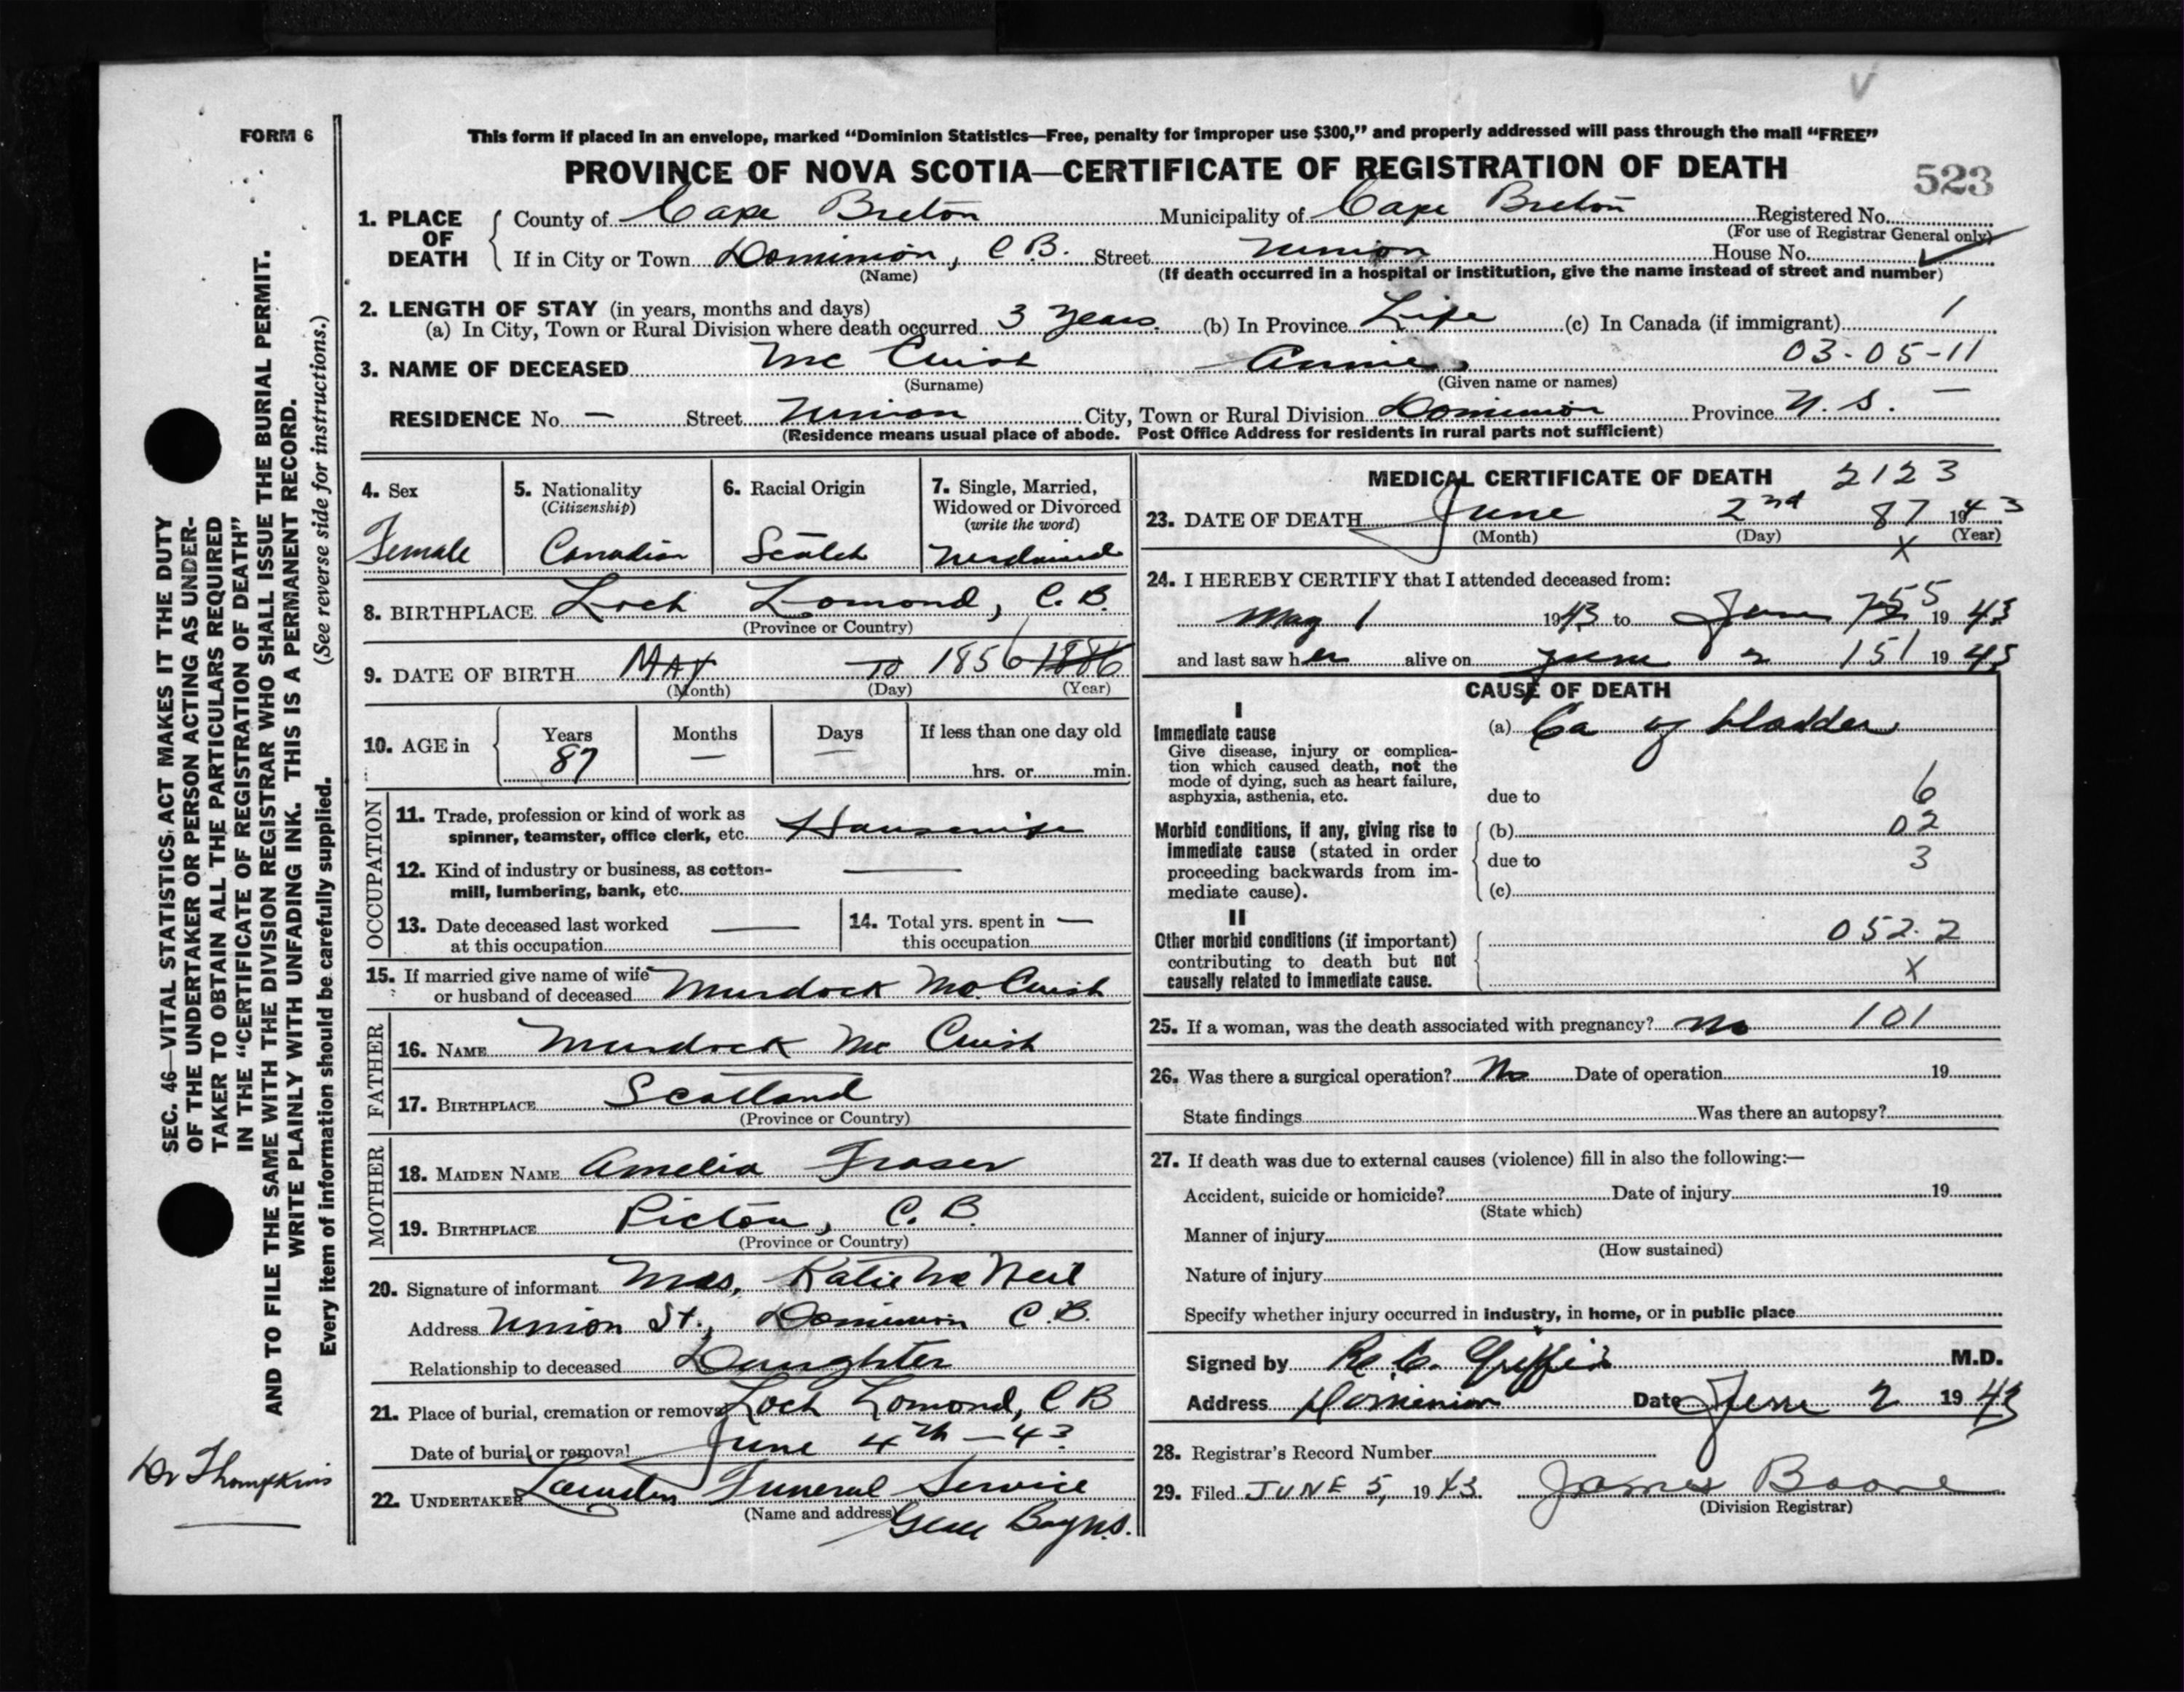 FORM 6
This form if placed in an envelope, marked “Dominion Statistics—Free, penalty for improper use $300,” and properly addressed will pass through the mail “FREE”
PROVINCE OF NOVA SCOTIA—CERTIFICATE OF REGISTRATION OF DEATH
523
1. PLACE OF DEATH
County of Cape Breton Municipality of Cape Breton Registered No.
(For use of Registrar General only)
If in City or Town Dominion, C B. Street Union House No.
(Name) (If death occurred in a hospital or institution, give the name instead of street and number)
2. LENGTH OF STAY (in years, months and days)
(a) In City, Town or Rural Division where death occurred 3 years. (b) In Province Life (c) In Canada (if immigrant) 1
03-05-11
3. NAME OF DECEASED Mc Cuish Annie
(Surname) (Given name or names)
RESIDENCE No. — Street Union City, Town or Rural Division Dominion Province N. S. —
(Residence means usual place of abode. Post Office Address for residents in rural parts not sufficient)
4. Sex
Female
5. Nationality
(Citizenship)
Canadian
6. Racial Origin
Scotch
7. Single, Married,
Widowed or Divorced
(write the word)
8. BIRTHPLACE Loch Lomond, C. B.
(Province or Country)
9. DATE OF BIRTH MAY 10 1856 1886
(Month) (Day) (Year)
10. AGE in Years Months Days If less than one day old
87 — — hrs. or min.
OCCUPATION
11. Trade, profession or kind of work as
spinner, teamster, office clerk, etc. Housewife
12. Kind of industry or business, as cotton-
mill, lumbering, bank, etc. —
13. Date deceased last worked
at this occupation —
14. Total yrs. spent in
this occupation —
15. If married give name of wife
or husband of deceased Murdock Mc Cuish
FATHER
16. NAME Murdock Mc Cuish
17. BIRTHPLACE Scotland
(Province or Country)
MOTHER
18. MAIDEN NAME Amelia Fraser
19. BIRTHPLACE Pictou, C. B.
(Province or Country)
20. Signature of informant Mrs, Katie Mc Neil
Address Union St., Dominion C.B.
Relationship to deceased Daughter
21. Place of burial, cremation or removal Loch Lomond, C B
Date of burial or removal June 4th — 43
22. UNDERTAKER Funeral Service
(Name and address) Bay N.S.
MEDICAL CERTIFICATE OF DEATH 2123
23. DATE OF DEATH June 2nd 87 1943
(Month) (Day) (Year)
X
24. I HEREBY CERTIFY that I attended deceased from:
May 1 1943 to June 1943
and last saw her alive on June 2 151 1943
CAUSE OF DEATH
I
Immediate cause
Give disease, injury or complica-
tion which caused death, not the
mode of dying, such as heart failure,
asphyxia, asthenia, etc.
(a) Ca of bladder
due to 6
Morbid conditions, if any, giving rise to
immediate cause (stated in order
proceeding backwards from im-
mediate cause).
(b) 02
due to 3
(c)
II
Other morbid conditions (if important)
contributing to death but not
causally related to immediate cause.
052.2
X
25. If a woman, was the death associated with pregnancy? no 101
26. Was there a surgical operation? No Date of operation 19
State findings Was there an autopsy?
27. If death was due to external causes (violence) fill in also the following:—
Accident, suicide or homicide? Date of injury 19
(State which)
Manner of injury
(How sustained)
Nature of injury
Specify whether injury occurred in industry, in home, or in public place
Signed by R. C. Griffin M.D.
Address Dominion Date June 2 1943
28. Registrar's Record Number
29. Filed JUNE 5, 1943. James Boone
(Division Registrar)
SEC. 46—VITAL STATISTICS ACT MAKES IT THE DUTY
OF THE UNDERTAKER OR PERSON ACTING AS UNDER-
TAKER TO OBTAIN ALL THE PARTICULARS REQUIRED
IN THE “CERTIFICATE OF REGISTRATION OF DEATH”
AND TO FILE THE SAME WITH THE DIVISION REGISTRAR WHO SHALL ISSUE THE BURIAL PERMIT.
WRITE PLAINLY WITH UNFADING INK. THIS IS A PERMANENT RECORD.
Every item of information should be carefully supplied. (See reverse side for instructions.)
Dr Thompkins